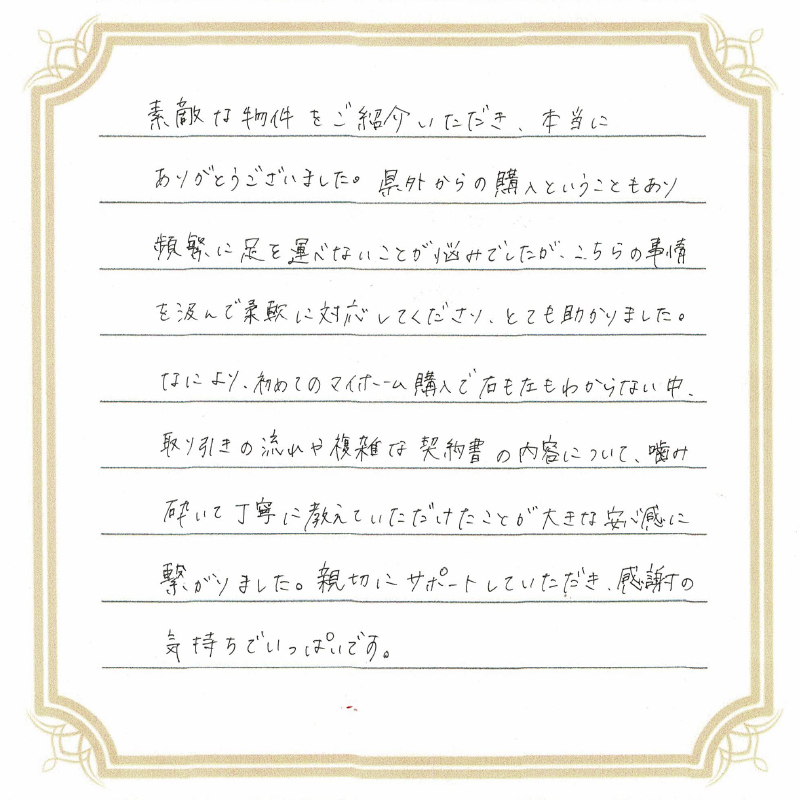 素敵な物件をご紹介いただき、本当に
ありがとうございました。県外からの購入ということもあり
頻繁に足を運べないことが悩みでしたが、こちらの事情
を汲んで柔軟に対応してくださり、とても助かりました。
なにより、初めてのマイホーム購入で右も左もわからない中、
取り引きの流れや複雑な契約書の内容について、噛み
砕いて丁寧に教えていただけたことが大きな安心感に
繋がりました。親切にサポートしていただき、感謝の
気持ちでいっぱいです。